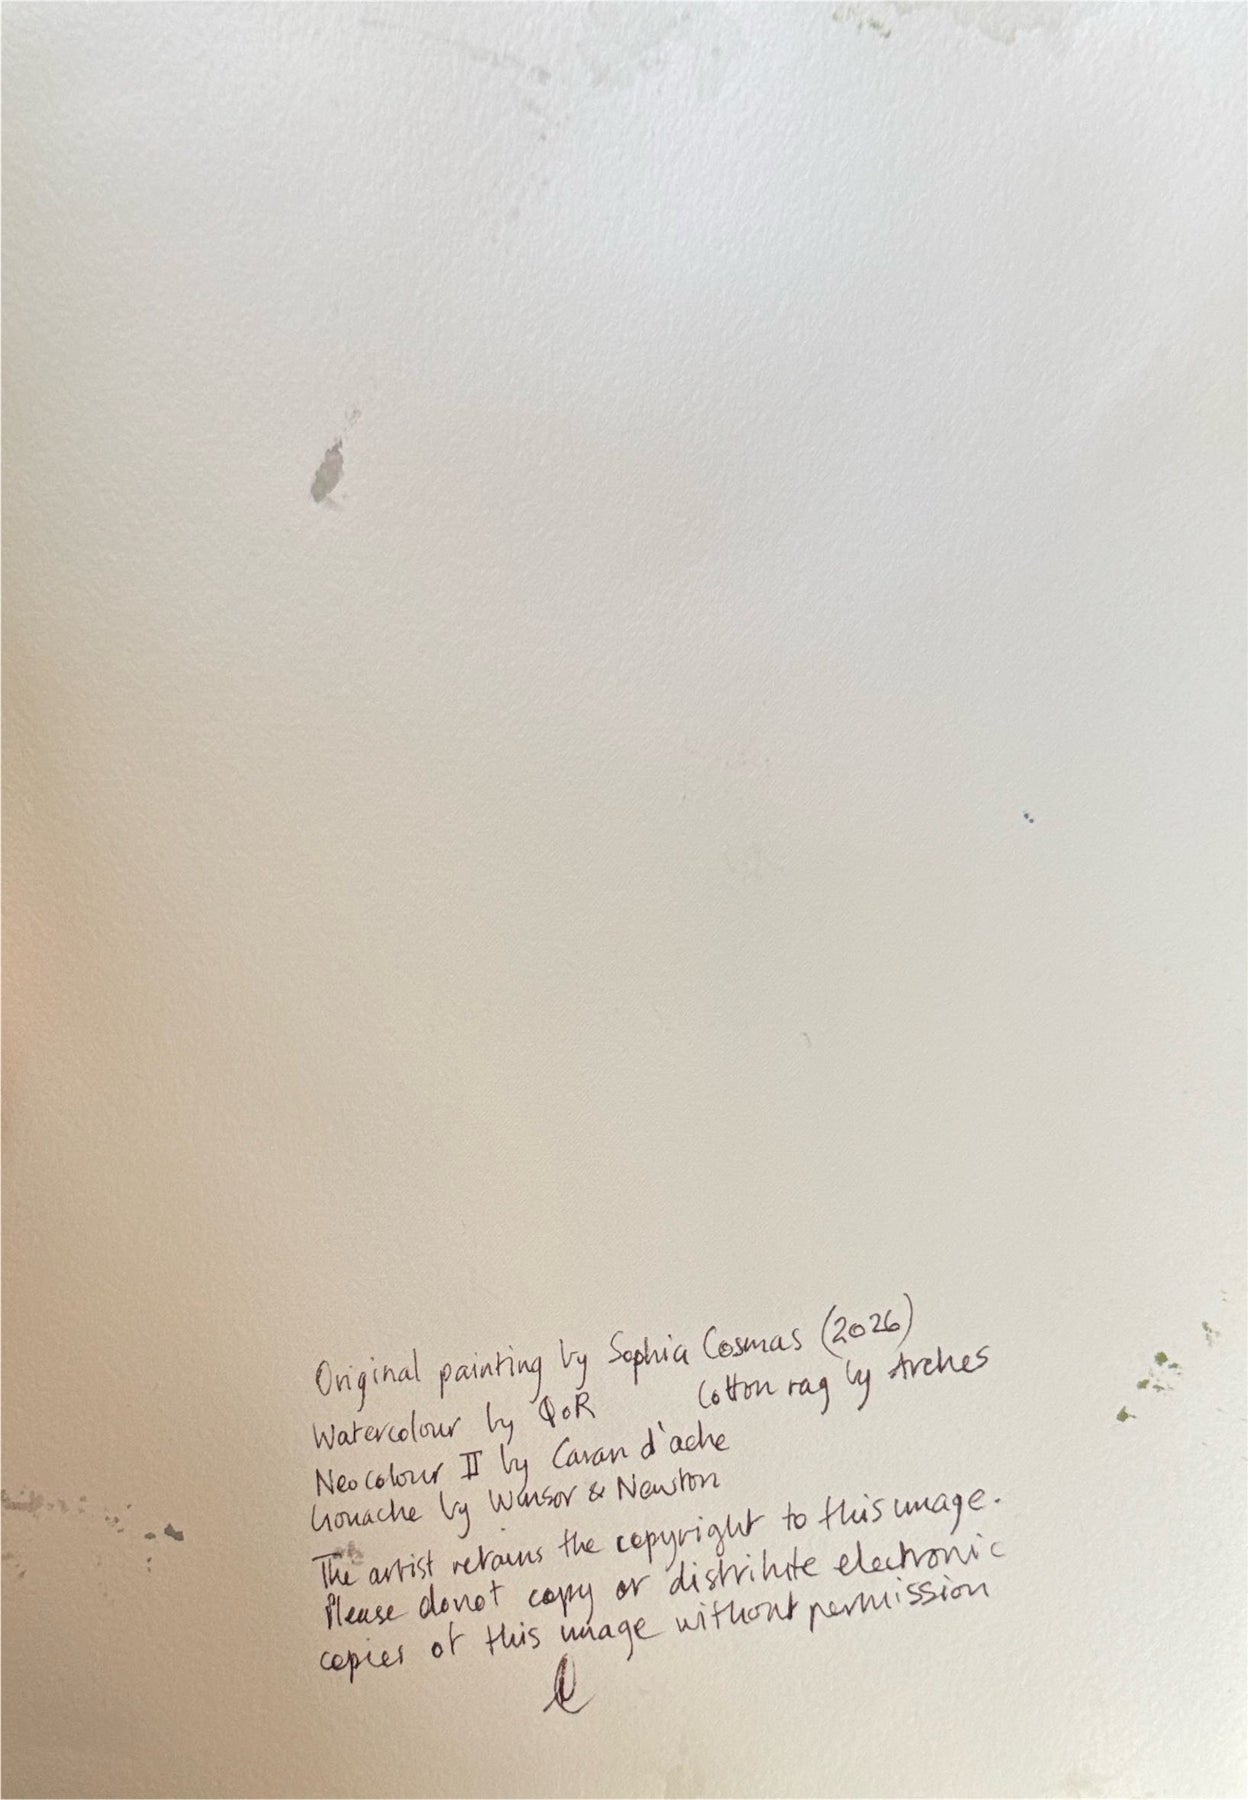 Original painting by Sophia Cosmas (2026)
Watercolour by QoR Cotton rag by Arches
Neocolour II by Caran d'ache
Gouache by Winsor & Newton
The artist retains the copyright to this image.
Please do not copy or distribute electronic
copies of this image without permission